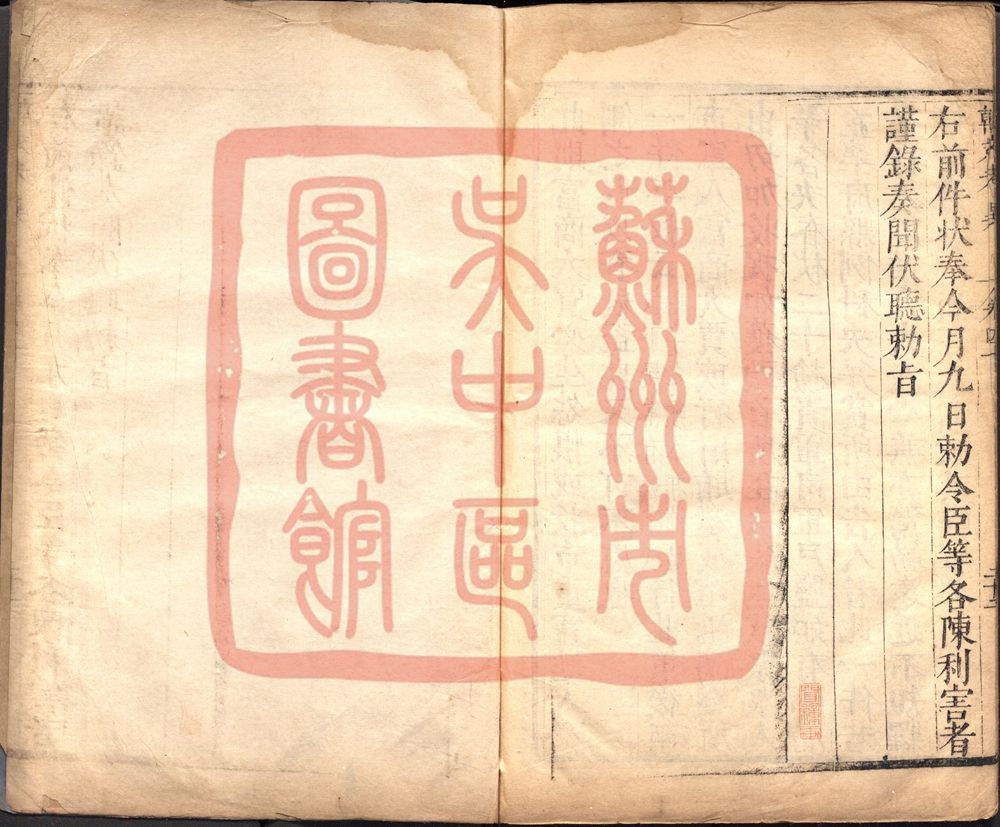 右前件状奉今月九日勅令臣等各陳利害者
謹錄奏聞伏聽勅旨
蘇州市
吳中區
圖書館